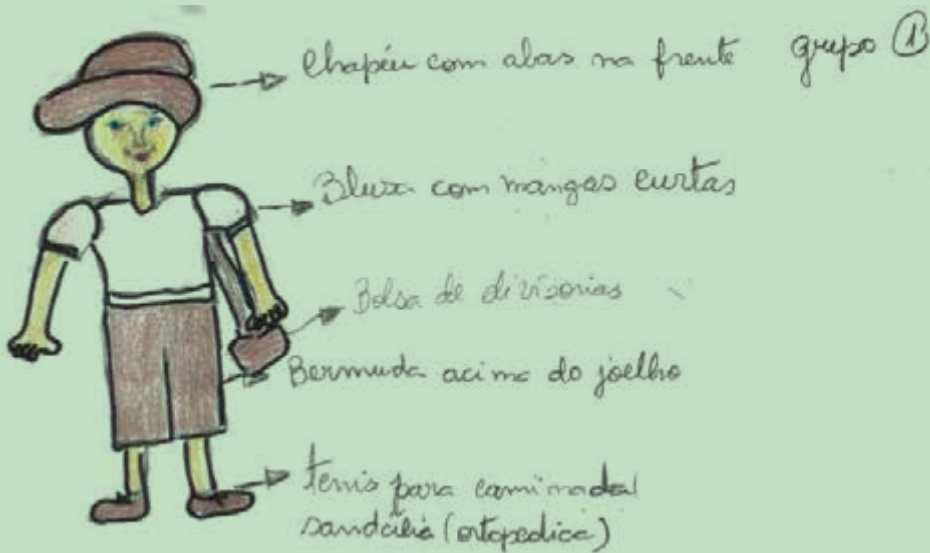 Chapéu com abas na frente grupo 1
Blusa com mangas curtas
Bolsa de divisorias
Bermuda acima do joelho
tenis para caminada/
sandália (ortopedica)